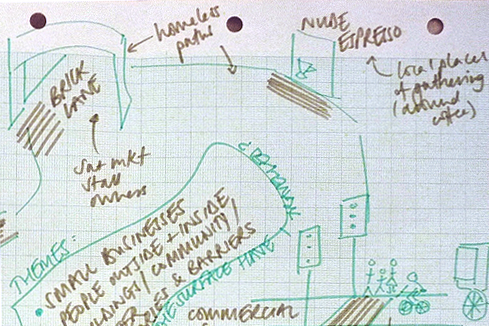 homeless
paths
NUDE
ESPRESSO
local places
of gathering
(around
coffee)
BRICK
LANE
Sat mkt
stall
owners
THEMES:
SMALL BUSINESSES
PEOPLE INSIDE + INSIDE
COMMUNITY/
& BARRIERS
SURFACE
COMMERCIAL